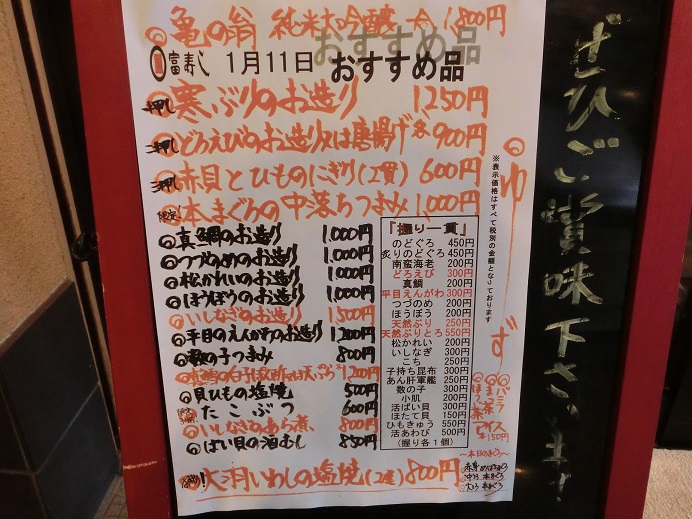 亀の翁 純米大吟醸 一合 1,800円
おすすめ品
富寿し 1月11日 おすすめ品
一押し 寒ぶりのお造り 1,250円
二押し どろえびのお造り又は唐揚げ 900円
三押し 赤貝とひものにぎり(2貫) 600円
限定! 本まぐろの中落ちつまみ 1,000円
真鯛のお造り 1,000円
つづのめのお造り 1,000円
松かれいのお造り 1,000円
ほうぼうのお造り 1,000円
いしなぎのお造り 1,500円
平目のえんがわのお造り 1,200円
数の子つまみ 800円
真鱈の白子 1,200円
貝ひもの塩焼 500円
たこぶつ 600円
いしなぎのあら煮 800円
ばい貝の酒むし 850円
大羽いわしの塩焼(2尾) 800円
「握り一貫」
のどぐろ 450円
炙りのどぐろ 450円
南蛮海老 200円
どろえび 300円
真鯛 200円
平目えんがわ 300円
つづのめ 200円
ほうぼう 200円
天然ぶり 250円
天然ぶりとろ 550円
松かれい 200円
いしなぎ 300円
こち 250円
子持ち昆布 300円
あん肝軍艦 250円
数の子 300円
小肌 200円
活ばい貝 300円
ほたて貝 150円
ひもきゅう 550円
活あわび 500円
(握り各1個)
※表示価格はすべて税別の金額となっております
ゆず
バニラ
ほうじ茶
アイス
本150円
～本日のまぐろ～
赤身 めばちまぐろ
中とろ 本まぐろ
大とろ 本まぐろ
ぜひご賞味下さいませ!